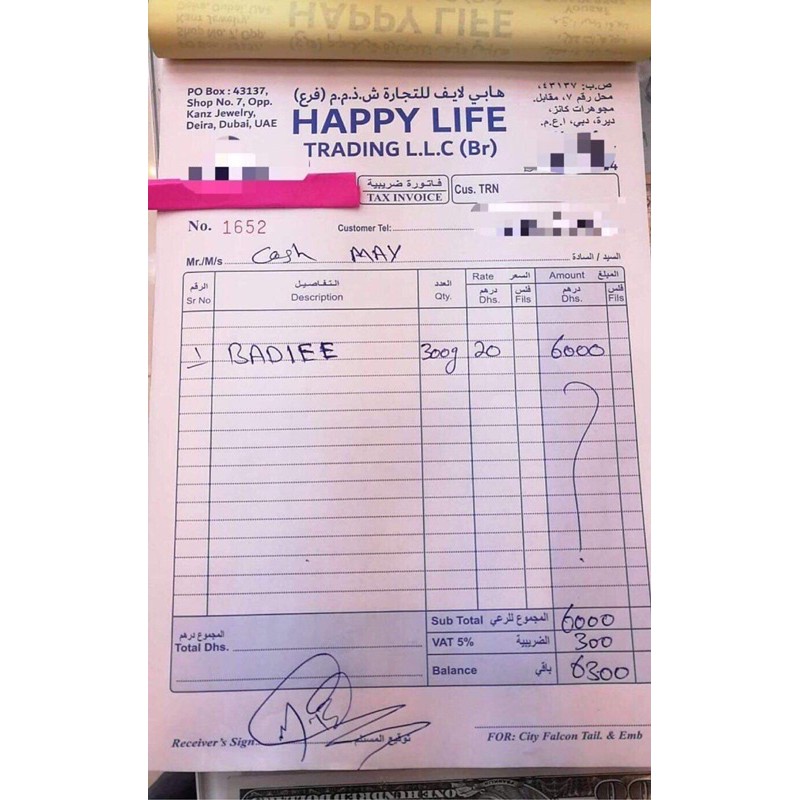 PO Box : 43137,
Shop No. 7, Opp.
Kanz Jewelry,
Deira, Dubai, UAE
هابي لايف للتجارة ش.ذ.م.م (فرع)
HAPPY LIFE
TRADING L.L.C (Br)
ص.ب: ٤٣١٣٧،
محل رقم ٧، مقابل،
مجوهرات كانز،
ديرة، دبي، ا.ع.م.
فاتورة ضريبية
TAX INVOICE
Cus. TRN
No. 1652
Customer Tel:
Mr./M/s Cash MAY السيد / السادة
الرقم التفاصيل العدد Rate السعر Amount المبلغ
Sr No Description Qty. درهم Dhs. فلس Fils درهم Dhs. فلس Fils
1 BADIEE 300g 20 6000
?
Sub Total المجموع للرعي 6000
المجموع درهم
Total Dhs.
VAT 5% الضريبية 300
Balance باقي 6300
Receiver's Sign. توقيع المستلم
FOR: City Falcon Tail. & Emb
ONE HUNDRED DOLLARS